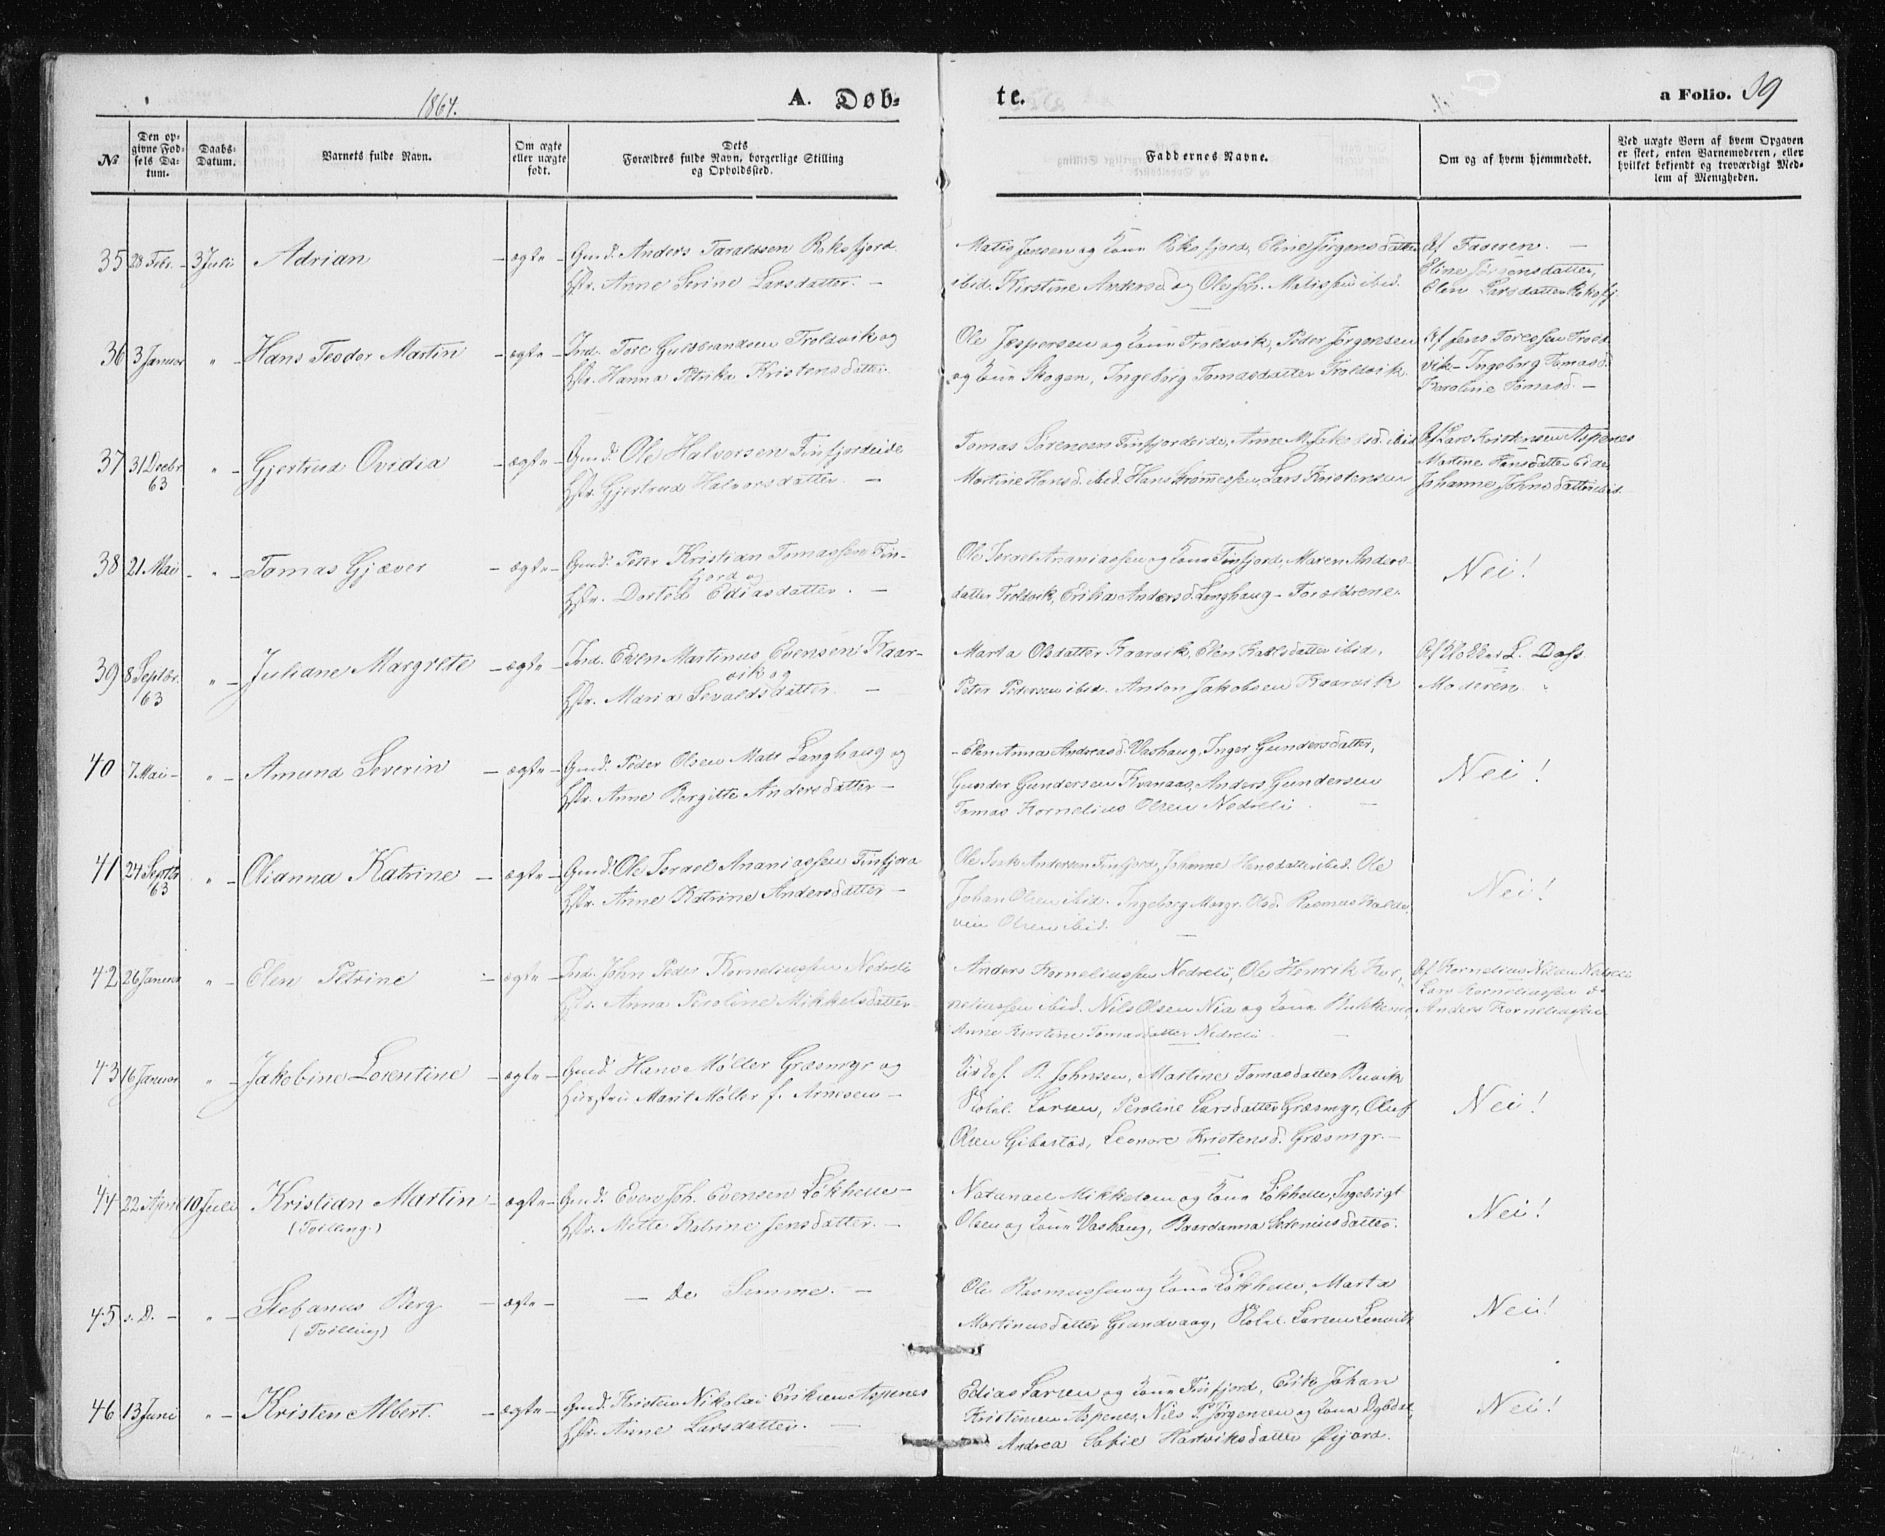 1864.
A. Døb-
te.
a Folio. 39
No
Den op-
givne Fød-
sels Da-
tum.
Daabs-
Datum.
Barnets fulde Navn.
Om ægte
eller uægte
født.
Dets
Forældres fulde Navn, borgerlige Stilling
og Opholdssted.
Faddernes Navne.
Om og af hvem hjemmedøbt.
Ved uægte Børn af hvem Opgaven
er skeet, enten Barnemoderen, eller
hvilket bekjendt og troværdigt Med-
lem af Menigheden.
35 28 Febr. - 3 Juli Adrian - ægte - Gmd. Anders Taraldsen Roksfjord
Hstr. Anne Serine Larsdatter. -
Matis Jensen og Kone Roksfjord, Eline Jørgensdatter
ibid. Kirstine Andersd. og Ole Joh. Matissen ibid.
Af Faderen. -
Eline Jørgensdatter,
Elen Larsdatter Roksfj.
36 3 Januar " - Hans Teodor Martin - ægte - Ind. Tore Gulbrandsen Troldvik og
Hstr. Hanna Petrike Kristensdatter.
Ole Jespersen og Kone Troldvik, Peder Jørgensen
og Kone Skogen, Ingeborg Tomasdatter Troldvik.
Af Jens Toressen Trold-
vik - Ingeborg Tomasd.
Karoline Tomasd. -
37 31 Decbr. 63 " - Gjertrud Ovidia - ægte - Gmd. Ole Halvorsen Finfjordeide
Hstr. Gjertrud Halvorsdatter. -
Tomas Sørensen Finfjordeide, Anne M. Jakobsd. ibid
Martine Hansd. ibid. Hans Lars Kristensen
Af Lars Kristensen Aspenes
Martine Hansdatter Eide
Johanne Johnsdatter ibid.
38 21 Mai - " - Tomas Gjæver - ægte - Gmd. Peter Kristian Tomassen Fin-
fjord og
Hstr. Dortea Ediasdatter. -
Ole Israel Ananiassen og Kone Finfjord, Maren Anders-
datter Troldvik, Erika Andersd. Langhaug - Forældrene.
Nei!
39 8 Septbr. 63 " - Juliane Margrete - ægte - Ind. Even Martinus Evensen Kaar-
vik og
Hstr. Maria Sevaldsdatter. -
Marta Olsdatter Kaarvik, Elen Karlsdatter ibid.
Peter Pedersen ibid. Anton Jakobsen Kaarvik
Af Klokker L. Dass
Moderen. "
40 7 Mai - " - Amund Severin - ægte - Gmd. Peder Olsen Mali Langhaug og
Hstr. Anne Bergitte Andersdatter -
- Elen Anna Andreasd. Vashaug, Inger Gundersdatter,
Gunder Gundersen Kvanaas, Anders Gundersen
Tomas Kornelius Olsen Nedreli. -
Nei!
41 24 Septbr 63 " - Olianna Katrine - ægte - Gmd. Ole Israel Ananiassen Finfjord
Hstr. Anne Katrine Andersdatter -
Ole Andersen Finfjord, Johanne Hansdatter ibid. Ole
Johan Olsen ibid. Ingeborg Margr. Olsd. Rasmus
Olsen ibid. -
Nei!
42 26 Januar " - Elen Petrine - ægte - Ind. John Peder Korneliussen Nedreli
Hstr. Anna Peroline Mikkelsdatter
Anders Korneliussen Nedreli, Ole Henrik Kor-
neliussen ibid. Nils Olsen og Kone
Anne Kirstine Tomasdatter Nedreli -
Af Kornelius Nilsen Nedreli
Lars Korneliussen do
Anders Korneliussen
43 16 Januar " - Jakobine Lorentine - ægte - Gmd. Hans Møller Græsmyr og
Hustru Marit Møller f. Arnesen -
P. Johnsen, Martine Tomasdatter Buvik
Larsen, Peroline Larsdatter Græsmyr, Oluf
Olsen Gibostad, Leonore Kristensd. Græsmyr. -
Nei!
44 22 April 10 Juli Kristian Martin - ægte - Gmd. Even Joh. Evensen Løkhelle -
(Tvilling.)
Hstr. Mette Katrine Jensdatter. -
Natanael Mikkelsen og Kone Løkhelle, Ingebrigt
Olsen og Kone Vashaug, Baardanna Sereniusdatter.
Nei!
45 s. D. - " - Stefanus Berg - ægte - - De Samme. -
(Tvilling)
Ole Rasmussen og Kone Løkhelle, Marta
Martinusdatter Grandvaag, Larsen Lenvik
Nei!
46 13 Juni " - Kristen Albert. - ægte - Gmd. Kristen Nikolai Eriksen Aspenes
Hstr. Anne Larsdatter. -
Edias Larsen og Kone Finfjord, Erik Johan
Kristensen Aspenes, Nils P. Jørgensen og Kone
Andrea Sofie Hartviksdatter Øijord.
Nei!